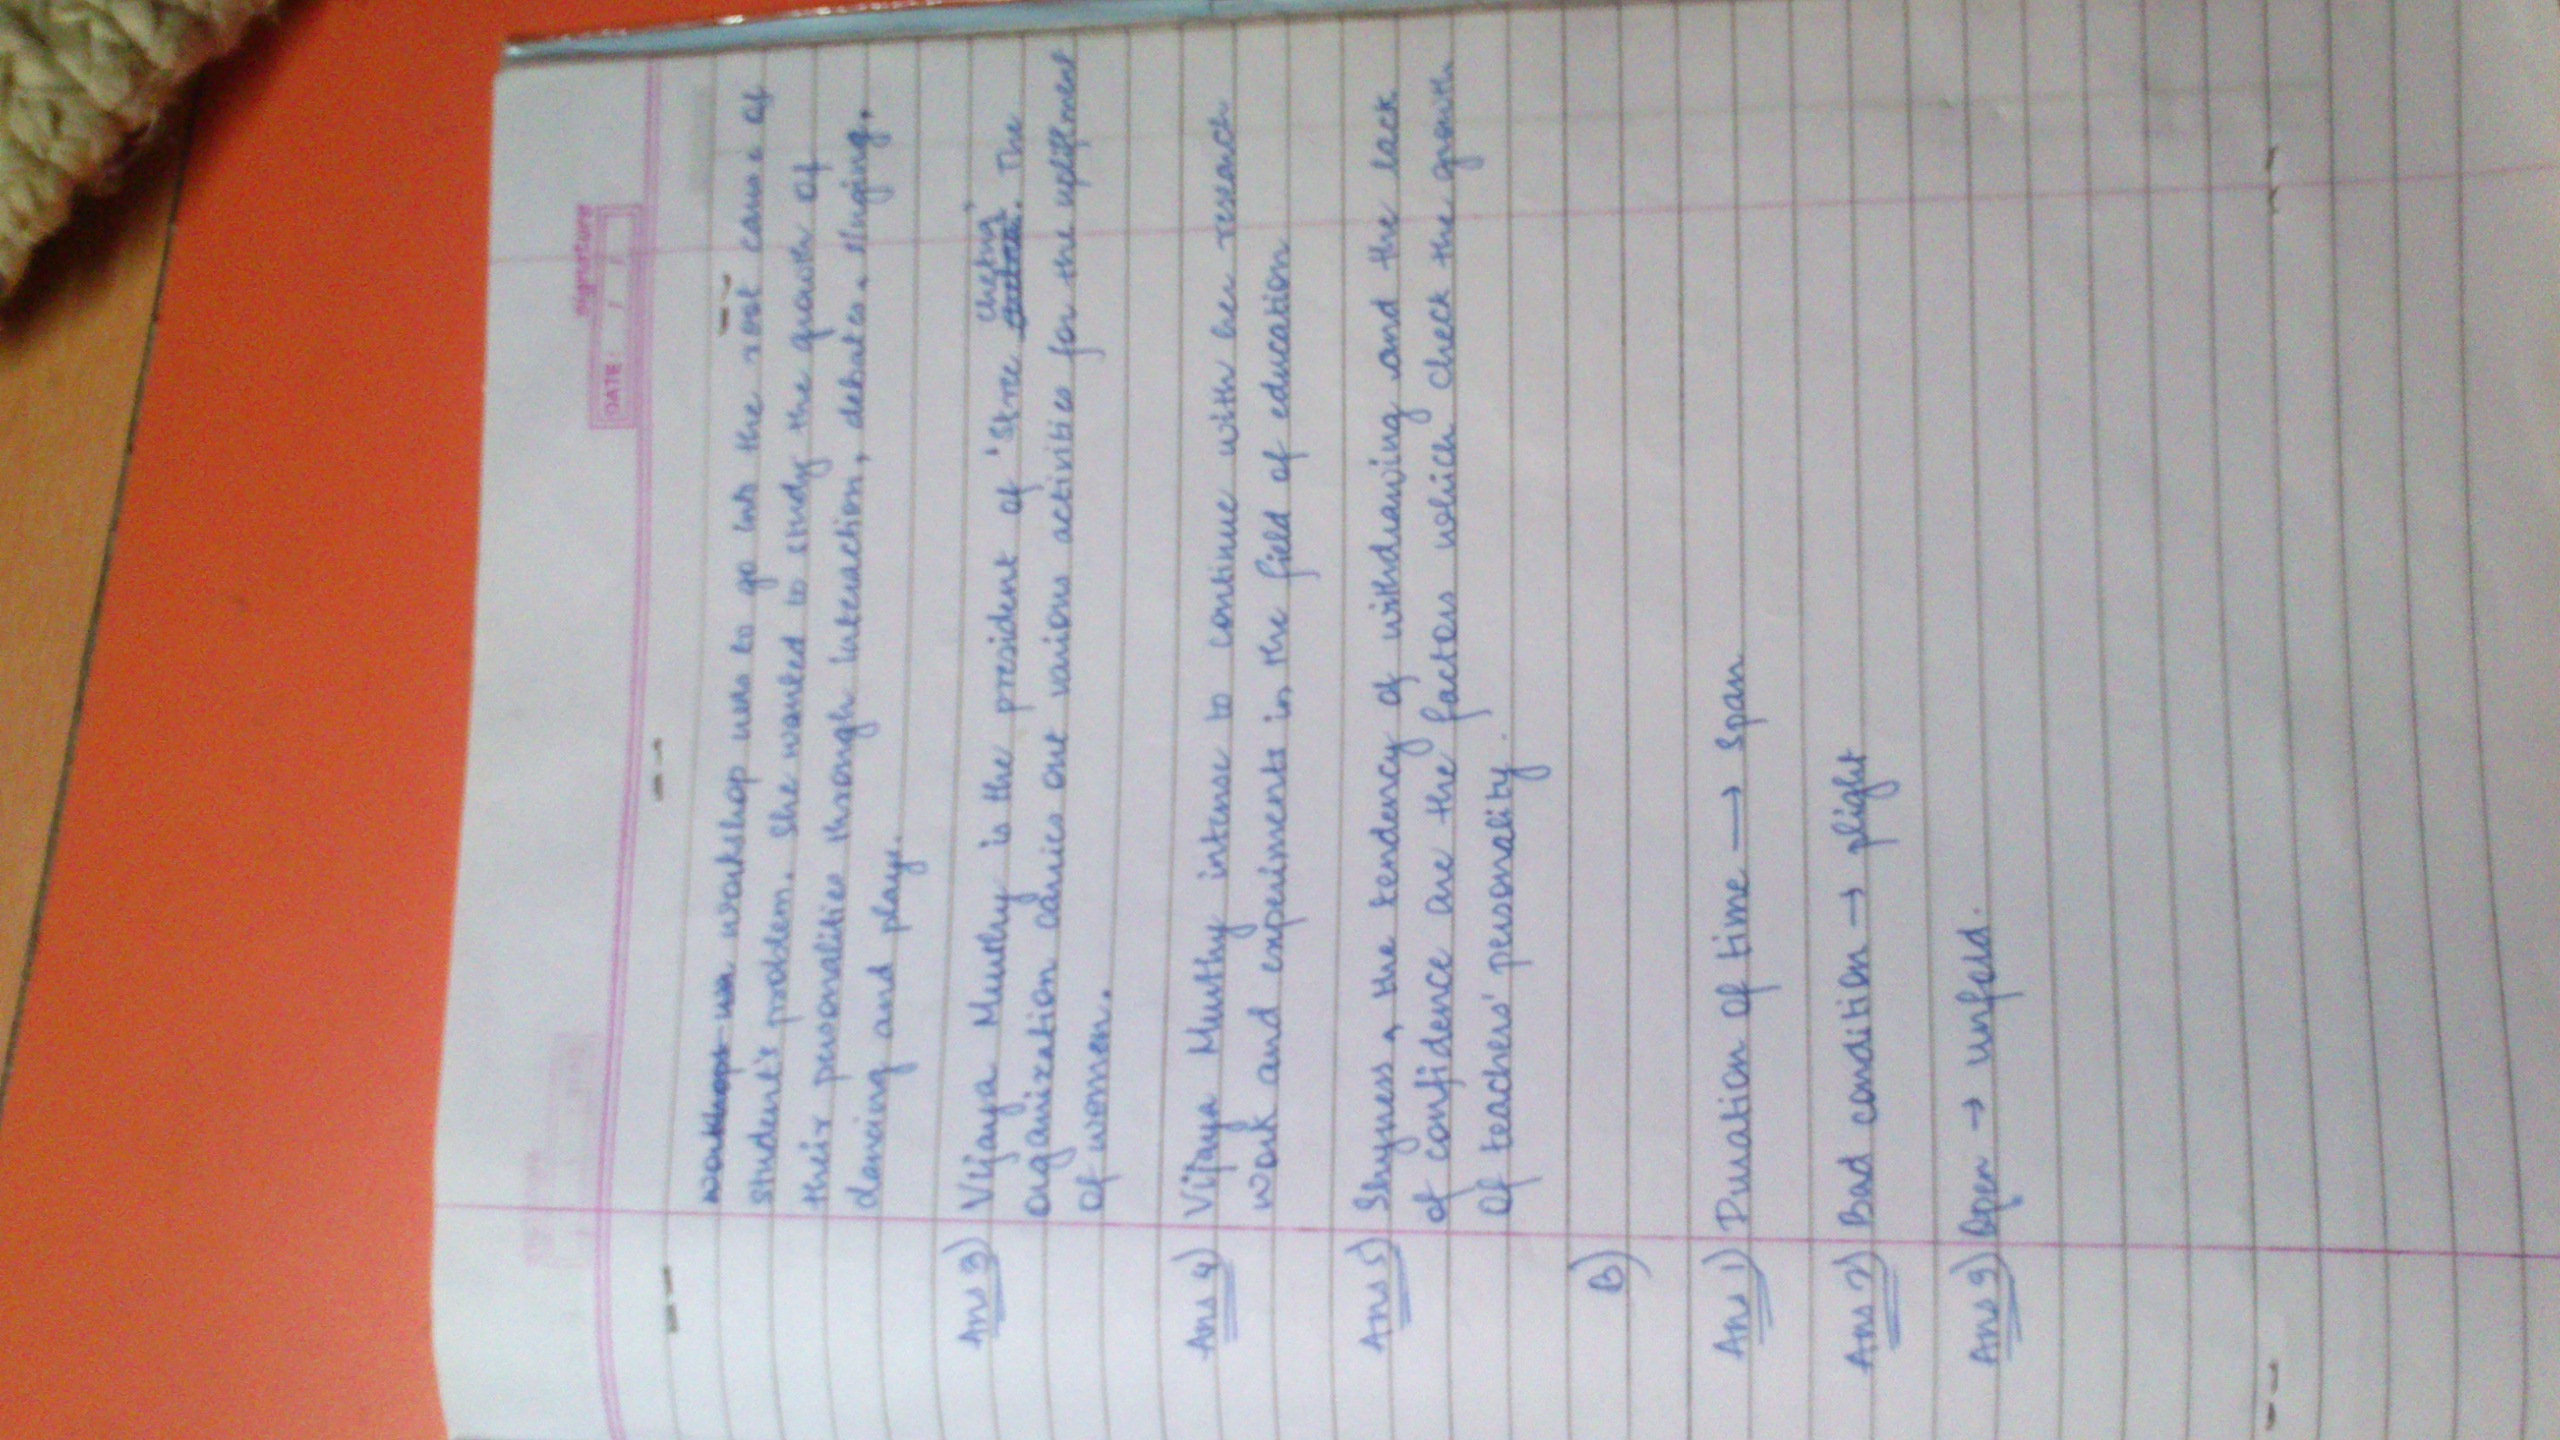 signature
DATE: / /
workshop was to go into the root cause of
student's problem. She wanted to study the growth of
their personalities through interaction, debates, singing,
dancing and plays.
Ans 3) Vijaya Murthy is the president of 'Stree chetna'. The
organization carries out various activities for the upliftment
of women.
Ans 4) Vijaya Murthy intense to continue with her research
work and experiments in the field of education
Ans 5) Shyness, the tendency of withdrawing and the lack
of confidence are the factors which check the growth
of teachers' personality.
B)
Ans 1) Duration of time → span
Ans 2) Bad condition → plight
Ans 3) Open → unfold.